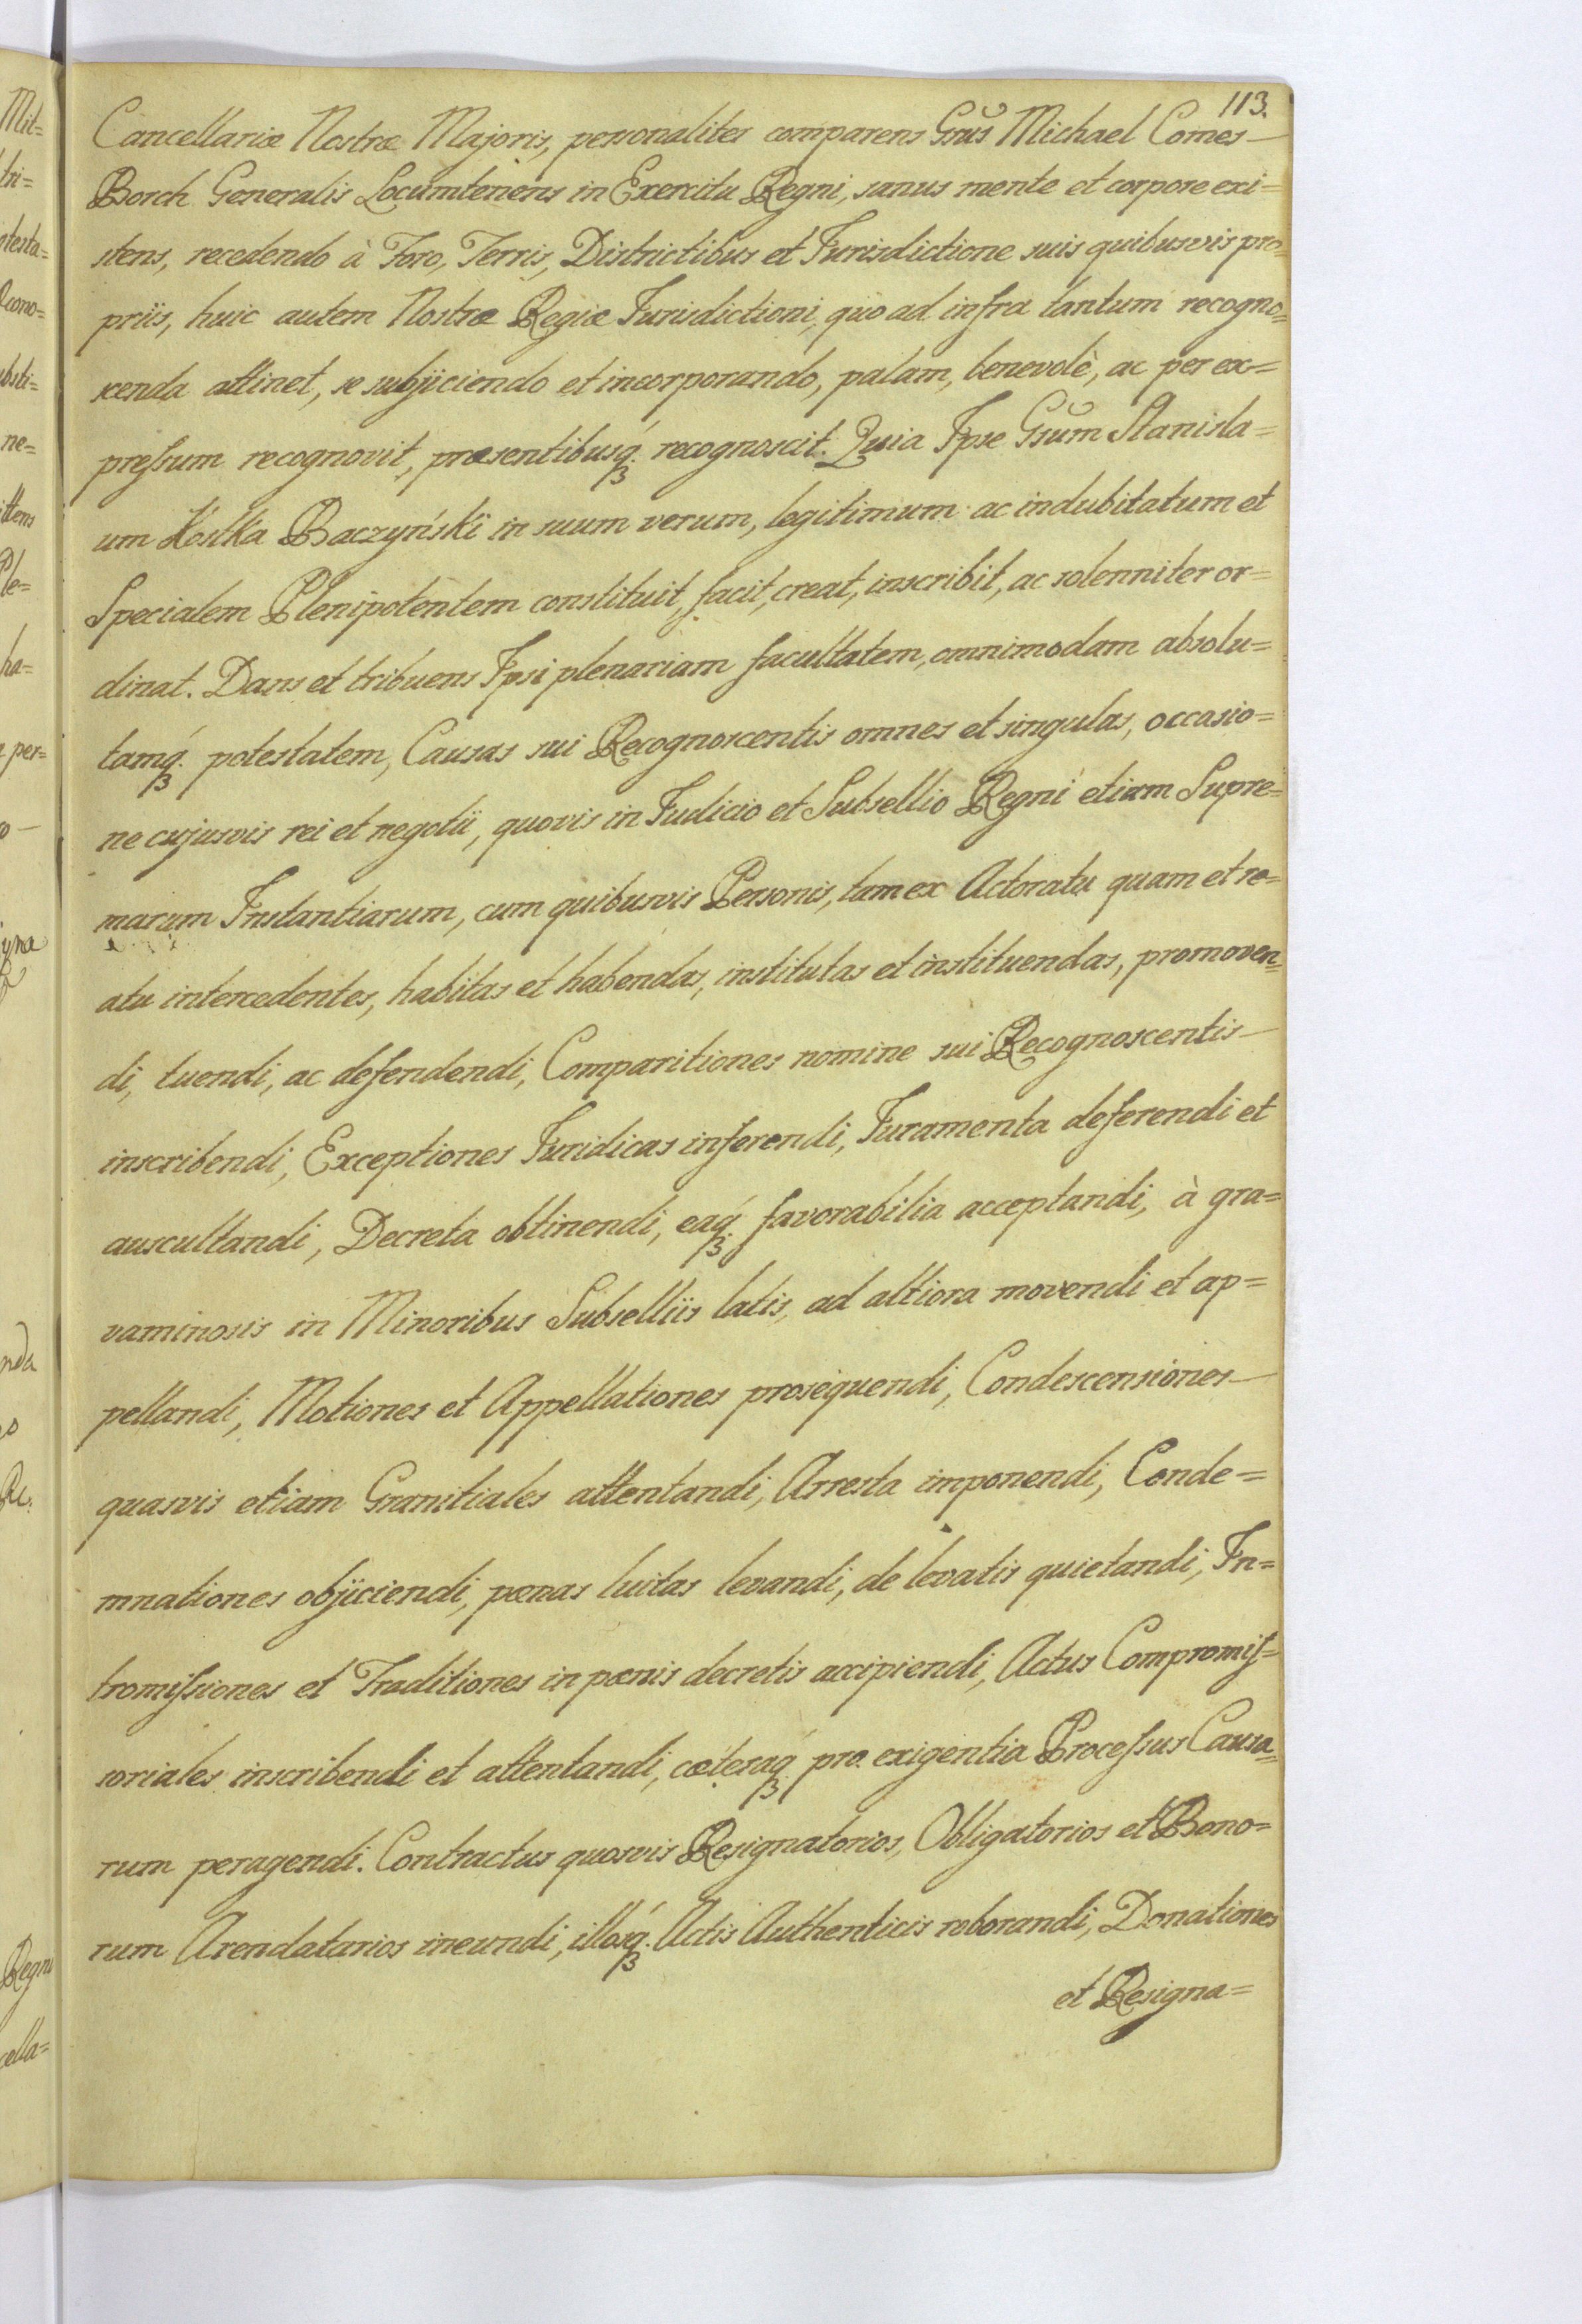 113.
Cancellariæ Nostræ Majoris, personaliter comparens Gñus Michael Comes
Borch Generalis Locumtenens in Exercitu Regni, sanus mente et corpore exi=
stens, recedendo à Foro, Terris, Districtibus et Jurisdictione suis quibusvis pro=
priis, huic autem Nostræ Regiæ Jurisdictioni, quo ad infra tantum recogno=
scenda attinet, se subjiciendo et incorporando, palam, benevolè, ac per ex=
pressum recognovit, præsentibusq́ꝫ recognoscit. Quia Ipse Gñum Stanisla=
um Kostka Baczyński in suum verum, legitimum ac indubitatum et
Specialem Plenipotentem constituit, facit, creat, inscribit, ac solenniter or=
dinat. Dans et tribuens Ipsi plenariam facultatem, omnimodam absolu=
tamq́ꝫ potestatem, Causas sui Recognoscentis omnes et singulas, occasio=
ne cujusvis rei et negotii, quovis in Judicio et Subsellio Regni etiam Supre=
marum Instantiarum, cum quibusvis Personis, tam ex Actoratu quam et re=
atu intercedentes, habitas et habendas, institutas et instituendas, promoven=
di, tuendi, ac defendendi, Comparitiones nomine sui Recognoscentis
inscribendi, Exceptiones Juridicas inferendi, Juramenta deferendi et
auscultandi, Decreta obtinendi, eaq́ꝫ favorabilia acceptandi, à gra=
vaminosis in Minoribus Subselliis latis, ad altiora movendi et ap=
pellandi, Motiones et Appellationes prosequendi, Condescensiones
quasvis etiam Granitiales attentandi, Arresta imponendi, Conde=
mnationes objiciendi, pœnas luitas levandi, de levatis quietandi, In=
tromissiones et Traditiones in pœnis decretis accipiendi, Actus Compromis=
soriales inscribendi et attentandi, cæteraq́ꝫ pro exigentia Processus Causa=
rum peragendi. Contractus quosvis Resignatorios, Obligatorios et Bono=
rum Arendatarios ineundi, illosq́ꝫ Actis Authenticis roborandi, Donationes
et Resigna=